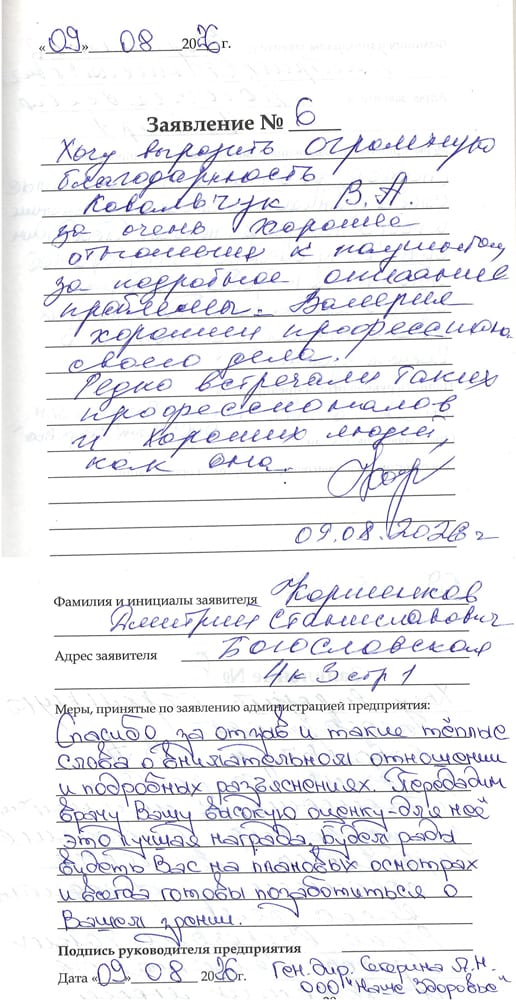 «09» 08 2026 г.
Заявление № 6
Хочу выразить огромную
благодарность
Ковальчук В.А.
за очень хорошее
отношение к пациентам,
за подробное описание
проблемы. Валерия
хороший профессионал
своего дела.
Редко встречали таких
профессионалов
и хороших людей,
как она.
09.08.2026 г
Фамилия и инициалы заявителя Коршенков
Дмитрий Станиславович
Адрес заявителя Богословская
4 к 3 стр 1
Меры, принятые по заявлению администрацией предприятия:
Спасибо за отзыв и такие тёплые
слова о внимательном отношении
и подробных разъяснениях. Передадим
врачу Вашу высокую оценку - для неё
это лучшая награда. Будем рады
видеть Вас на плановых осмотрах
и всегда готовы позаботиться о
Вашем зрении.
Подпись руководителя предприятия
Дата «09» 08 2026 г. Ген. дир. Сатарина Л.Н.
ООО "Наше Здоровье"